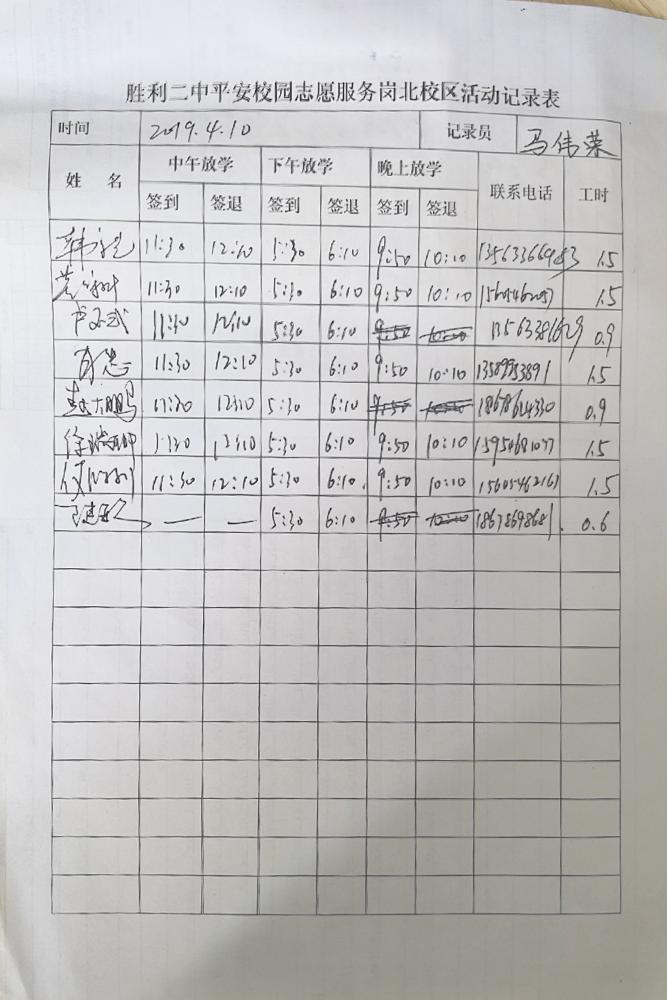 胜利二中平安校园志愿服务岗北校区活动记录表
时间 2019.4.10 记录员 马伟荣
姓 名 中午放学 下午放学 晚上放学 联系电话 工时
签到 签退 签到 签退 签到 签退
11:30 12:10 5:30 6:10 9:50 10:10 1.5
11:30 12:10 5:30 6:10 9:50 10:10 1.5
11:30 12:10 5:30 6:10 9:50 10:10 0.9
11:30 12:10 5:30 6:10 9:50 10:10 1.5
11:30 12:10 5:30 6:10 9:50 10:10 0.9
徐 11:30 12:10 5:30 6:10 9:50 10:10 1.5
11:30 12:10 5:30 6:10 9:50 10:10 15605462163 1.5
— — 5:30 6:10 9:50 10:10 18678698681 0.6